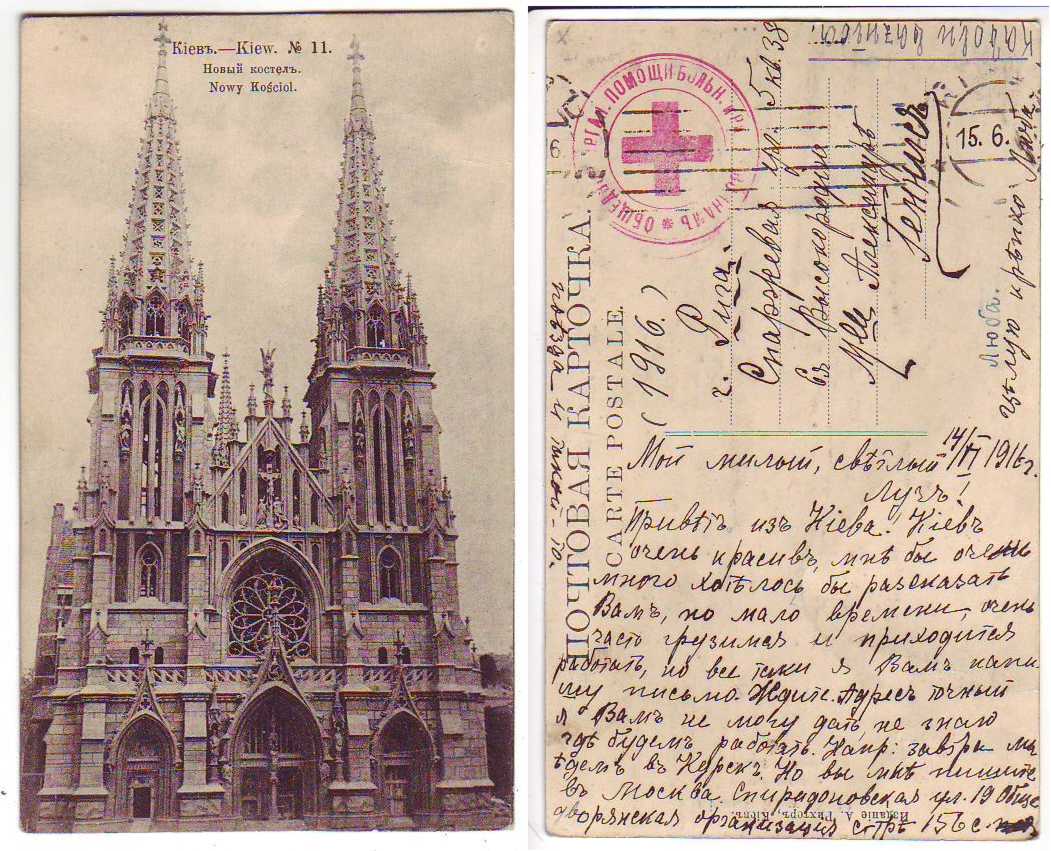 Кіевъ.—Kiew. № 11.
Новый костелъ.
Nowy Kościol.
поѣзда и
ПОЧТОВАЯ КАРТОЧКА.
CARTE POSTALE.
ПОМОЩИ БОЛЬН.
15. 6.
(1916.)
г. Рига.
ул. 5 кв. 38
Высокородіе
Mlle Александрѣ
Геннигсъ
Люба.
цѣлую крѣпко
14/VI 1916 г.
Мой милый, свѣтлый
лучъ!
Привѣтъ изъ Кіева. Кіевъ
очень красивъ, мнѣ бы очень
много хотѣлось бы разсказать
Вамъ, но мало времени, очень
часто грузимся и приходится
работать, но все таки я Вамъ напи
шу письмо. Ждите. Адресъ точный
я Вамъ не могу дать, не знаю
гдѣ будемъ работать. Напр: завтра мы
ѣдемъ въ Курскъ. Но вы мнѣ пишите
въ Москва. Спиридоновская ул. 19 Обще
дворянская организація 156
Изданіе А. Рихтеръ, Кіевъ.